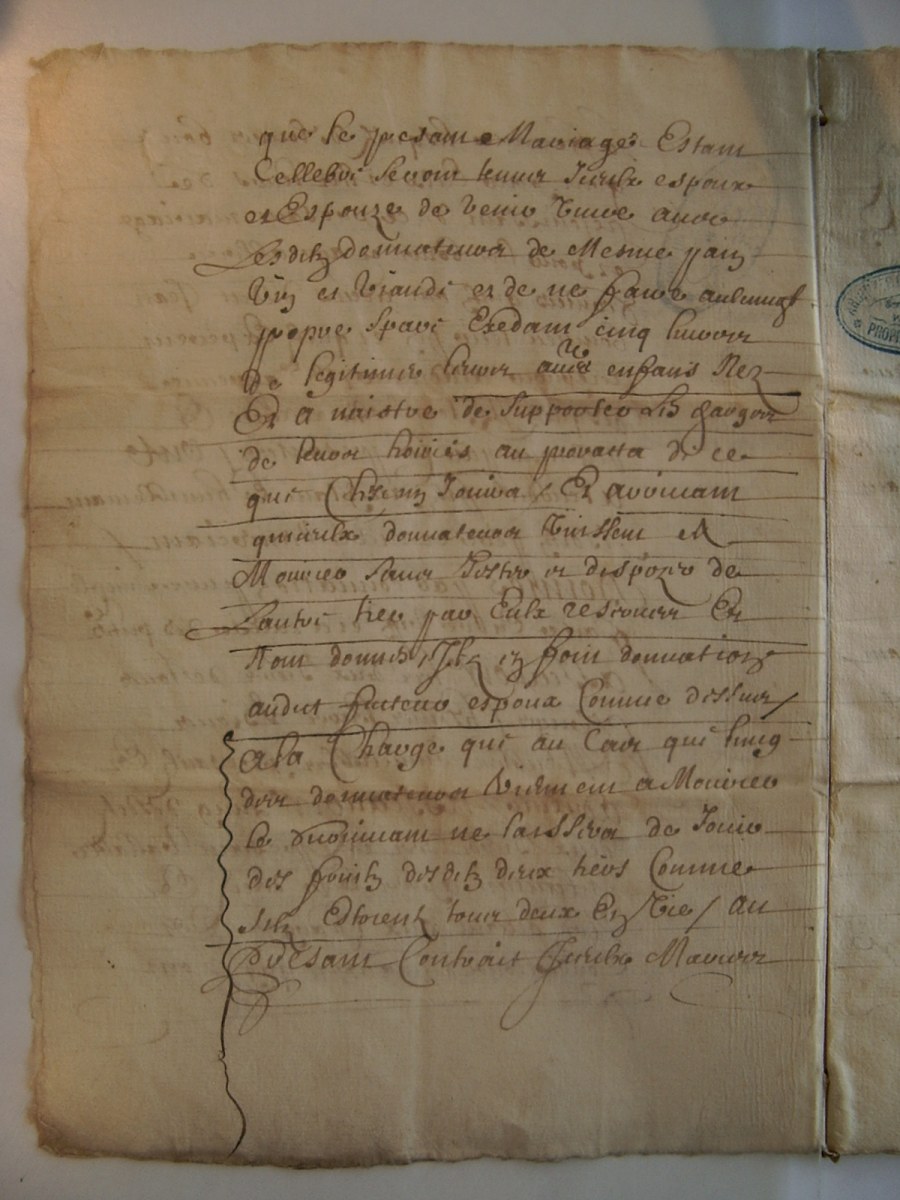 que le present Mariage Estant
Cellebré seront tenus Iceulx espoux
et Espouze de venir vivre avec
lesditz donnateurs de Mesme pain
vin et viande et de ne faire aulcung
propre Exedant cinq
de legitimes leurs aultres enfans Nez
Et a naistre de supporter les charges
de leurs au prorata de ce
que Chascung Jouira / Et advenant
qu'iceulx donnateurs vinssent a
Mourir sans Tester et dispozer de
l'autre tiers par Eulx reservez Et
Non donnés, Ilz en font donnation
audict futeur espoux Comme dessus /
A la Charge que au Cas que l'ung
des donnateurs vienent a Mourir
le survivant ne laissera de Jouir
des fruitz desditz deux tiers Comme
silz Estoient tous deux En vie / Au
présant Contrait Iceulx Mariez
PROP